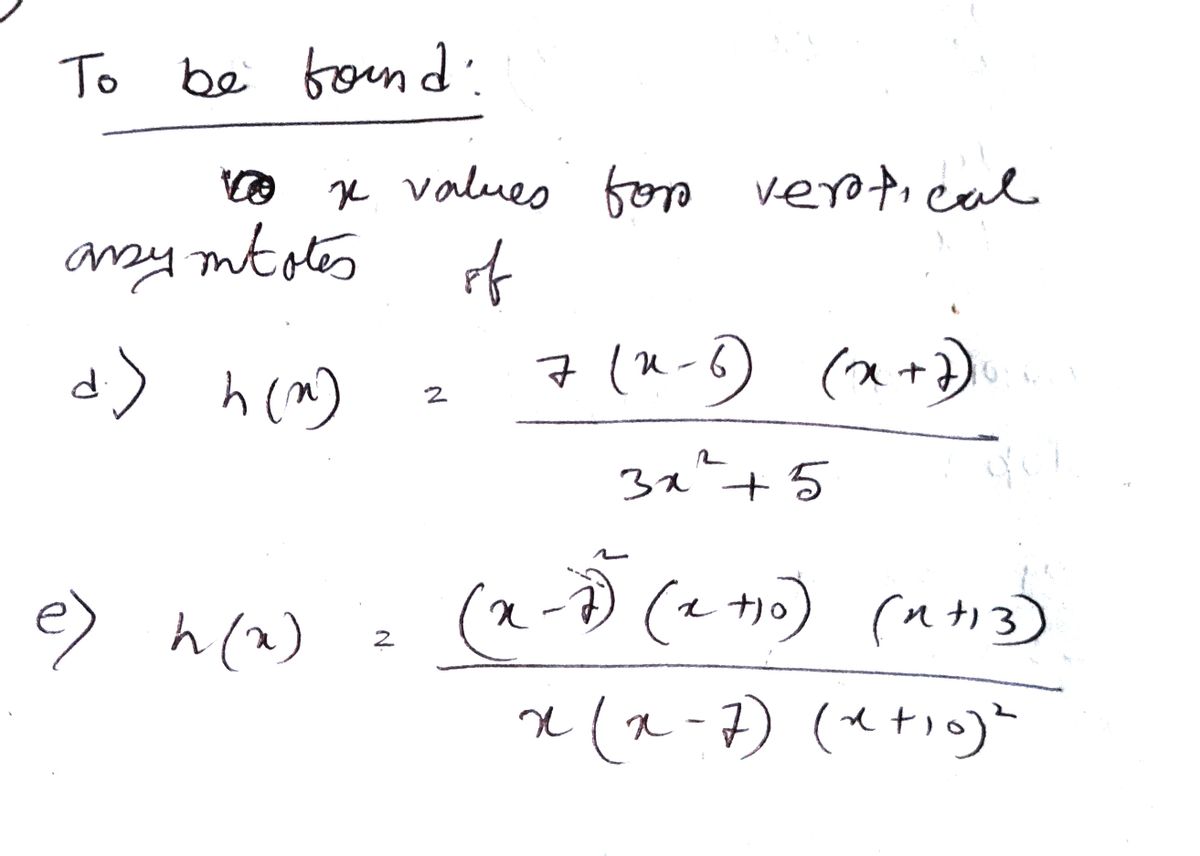 To be found:
x values for vertical
asymtotes of
d.) h(x) = 7 (x-6) (x+7)
3x² + 5
e) h(x) = (x-7)² (x+10) (x+13)
x (x-7) (x+10)²